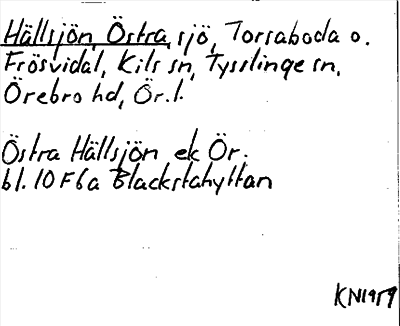 Hällsjön, Östra, sjö, Torsaboda o.
Frösvidal, Kils sn, Tysslinge sn,
Örebro hd, Ör. l.
Östra Hällsjön ek Ör.
bl. 10 F 6a Blackstahyttan
KN1959